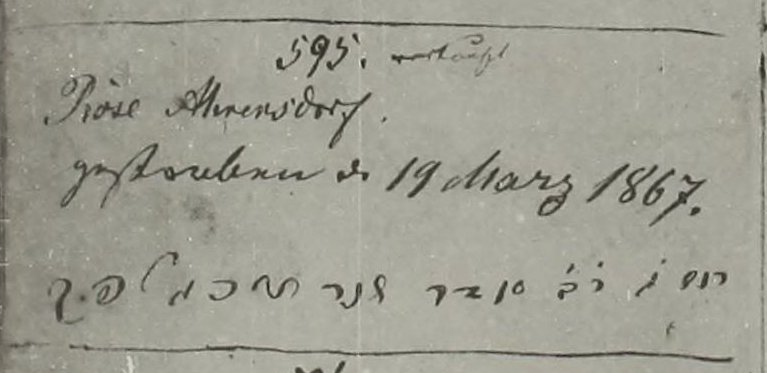 595. verkauft
Röse Ahrensdorf.
gestorben d 19 März 1867.
יום ג' י'ב' אדר שני תרכז לפק